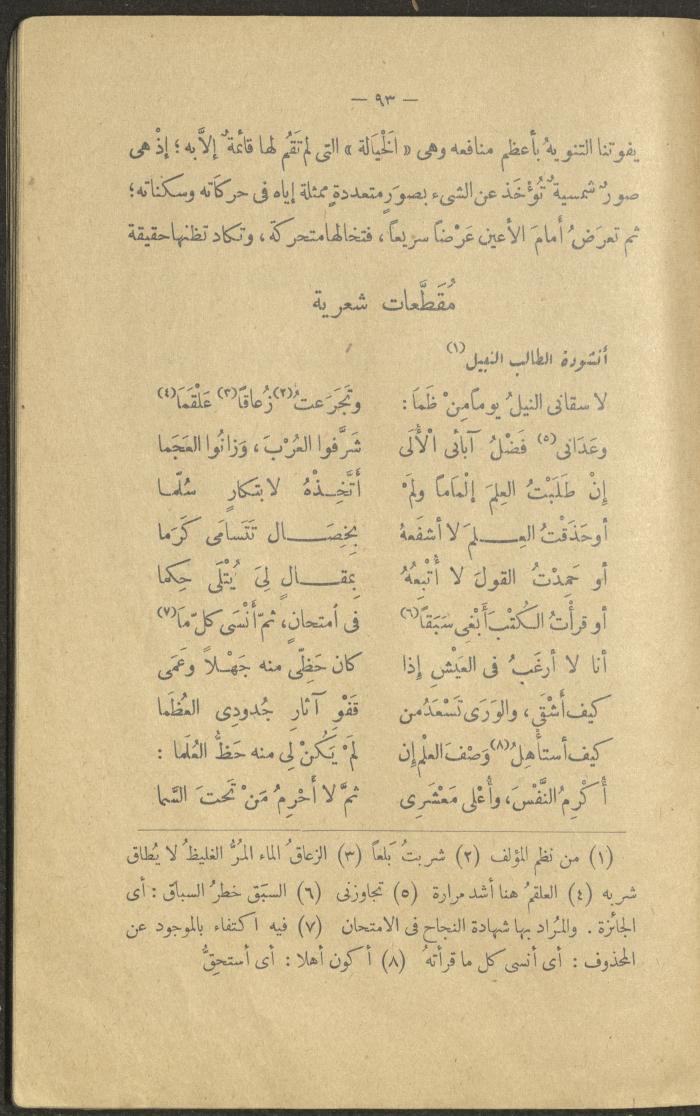 — ٩٣ —
يفوتنا التنويهُ بأعظم منافعه وهى « الَخْيَالة » التى لم تَقُم لها قائمةٌ إلاَّ به ؛ إذْ هى
صورٌ شمسيةٌ تُؤْخَذ عن الشىء بصوَرٍ متعددةٍ ممثلة إياه فى حركاته وسكناته ؛
ثم تعرَضُ أمامَ الأعين عَرْضاً سريعاً ، فتخالها متحركة ، وتكاد تظنها حقيقة
مُقَطَّعات شعرية
أنشودة الطالب النبيل (١)
لا سقانى النيلُ يوماً مِنْ ظَمَا : وتَجَرَعتُ (٢) زُعاقًا (٣) عَلْقَمَا (٤)
وعَدَانى (٥) فَضْلُ آبائى الْأُلَى شَرَّفوا العُرْبَ ، وَزانُوا العَجَما
إنْ طَلَبْتُ العِلمَ إلْمَاماً ولَمْ أَتَّخِذْهُ لابتكارٍ سُلَّما
أوحَذَقْتُ العِلمَ لا أشفَعهُ بِخِصَالٍ تَتَسامَى كَرَما
أو حَمِدْتُ القولَ لا أُتْبِعُهُ بِمقالٍ لِىَ يُتْلَى حِكما
أو قرأْتُ الكُتْبَ أَبْغِى سَبَقاً (٦) فى اُمتحانٍ ، ثمّ أَنْسَى كلَّ مَا (٧)
أنا لا أرغَبُ فى العَيْشِ إذا كان حَظِّى منه جَهْلاً وعَمَى
كيف أَشْقَى ، والوَرَى تَسْعَدُ من قَفْوِ آثارِ جُدودِى العُظَما
كيف أستأهِلُ (٨) وَصْفَ العلْمِ إن لَمْ يَكُنْ لِى منه حَظُّ العُلَما :
أُكْرِمُ النَّفْسَ ، وأُعْلى مَعْشَرِى ثمَّ لا أَحْرِمُ مَنْ تَحتَ السَّما
(١) من نظم المؤلف (٢) شربتُ بَلعاً (٣) الزعاقُ الماء المُرُّ الغليظُ لا يُطاق
شربه (٤) العلقمُ هنا أشد مرارة (٥) تجاوزنى (٦) السبَق خطرُ السباق : أى
الجائزة . والمُراد بها شهادة النجاح فى الامتحان (٧) فيه اكتفاء بالموجود عن
المحذوف : أى أنسى كل ما قرأتهُ (٨) أكون أهلا : أى أستحِقُّ